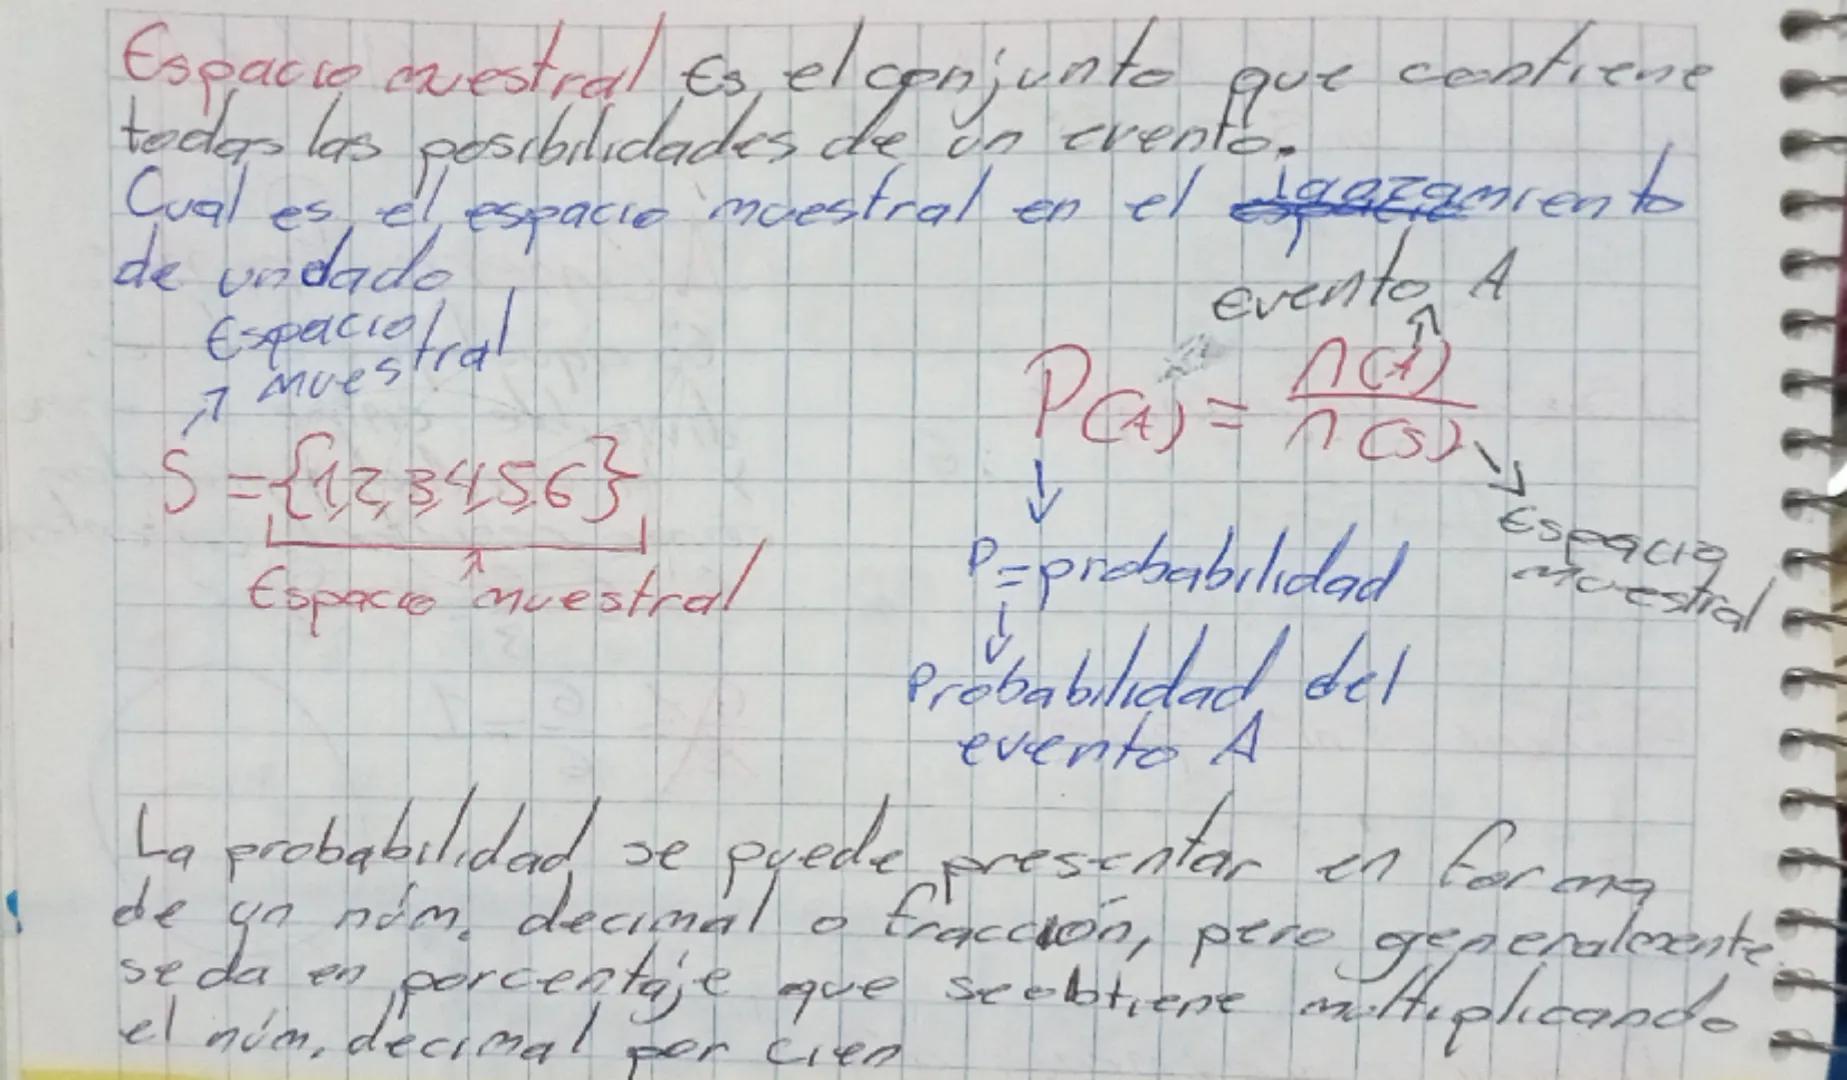 Espacio muestral Es el conjunto que contiene
todas las posibilidades de un evento.
Cual es el espacio muestral en el lanzamiento
de un dado
Espacio
muestral
S = {1,2,3,4,5,6}
Espacio muestral
evento A
P(A) = n(A) / n(S)
Espacio
muestral
P = probabilidad
Probabilidad del
evento A
La probabilidad se puede presentar en forma
de un núm. decimal o fracción, pero generalmente
se da en porcentaje que se obtiene multiplicando
el núm. decimal por cien